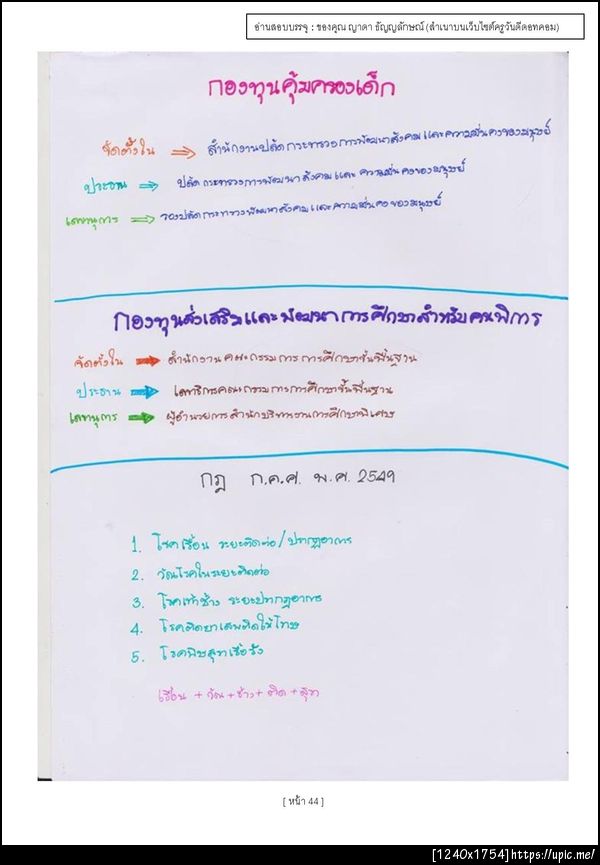 อ่านสอบบรรจุ : ของคุณ ญาดา ธัญญลักษณ์ (สำเนาบนเว็บไซต์ครูวันดีดอทคอม)
กองทุนคุ้มครองเด็ก
จัดตั้งใน ⇒ สำนักงานปลัดกระทรวงการพัฒนาสังคมและความมั่นคงของมนุษย์
ประธาน ⇒ ปลัดกระทรวงการพัฒนาสังคมและความมั่นคงของมนุษย์
เลขานุการ ⇒ รองปลัดกระทรวงพัฒนาสังคมและความมั่นคงของมนุษย์
กองทุนส่งเสริมและพัฒนาการศึกษาสำหรับคนพิการ
จัดตั้งใน ➡ สำนักงานคณะกรรมการการศึกษาขั้นพื้นฐาน
ประธาน ➡ เลขาธิการคณะกรรมการการศึกษาขั้นพื้นฐาน
เลขานุการ ➡ ผู้อำนวยการสำนักบริหารงานการศึกษาพิเศษ
กฎ ก.ค.ศ. พ.ศ. 2549
1. โรคเรื้อน ระยะติดต่อ/ปรากฏอาการ
2. วัณโรคในระยะติดต่อ
3. โรคเท้าช้าง ระยะปรากฏอาการ
4. โรคติดยาเสพติดให้โทษ
5. โรคพิษสุราเรื้อรัง
เรื้อน + วัณ + ช้าง + ติด + สุรา
[ หน้า 44 ]
[1240x1754]https://upic.me/